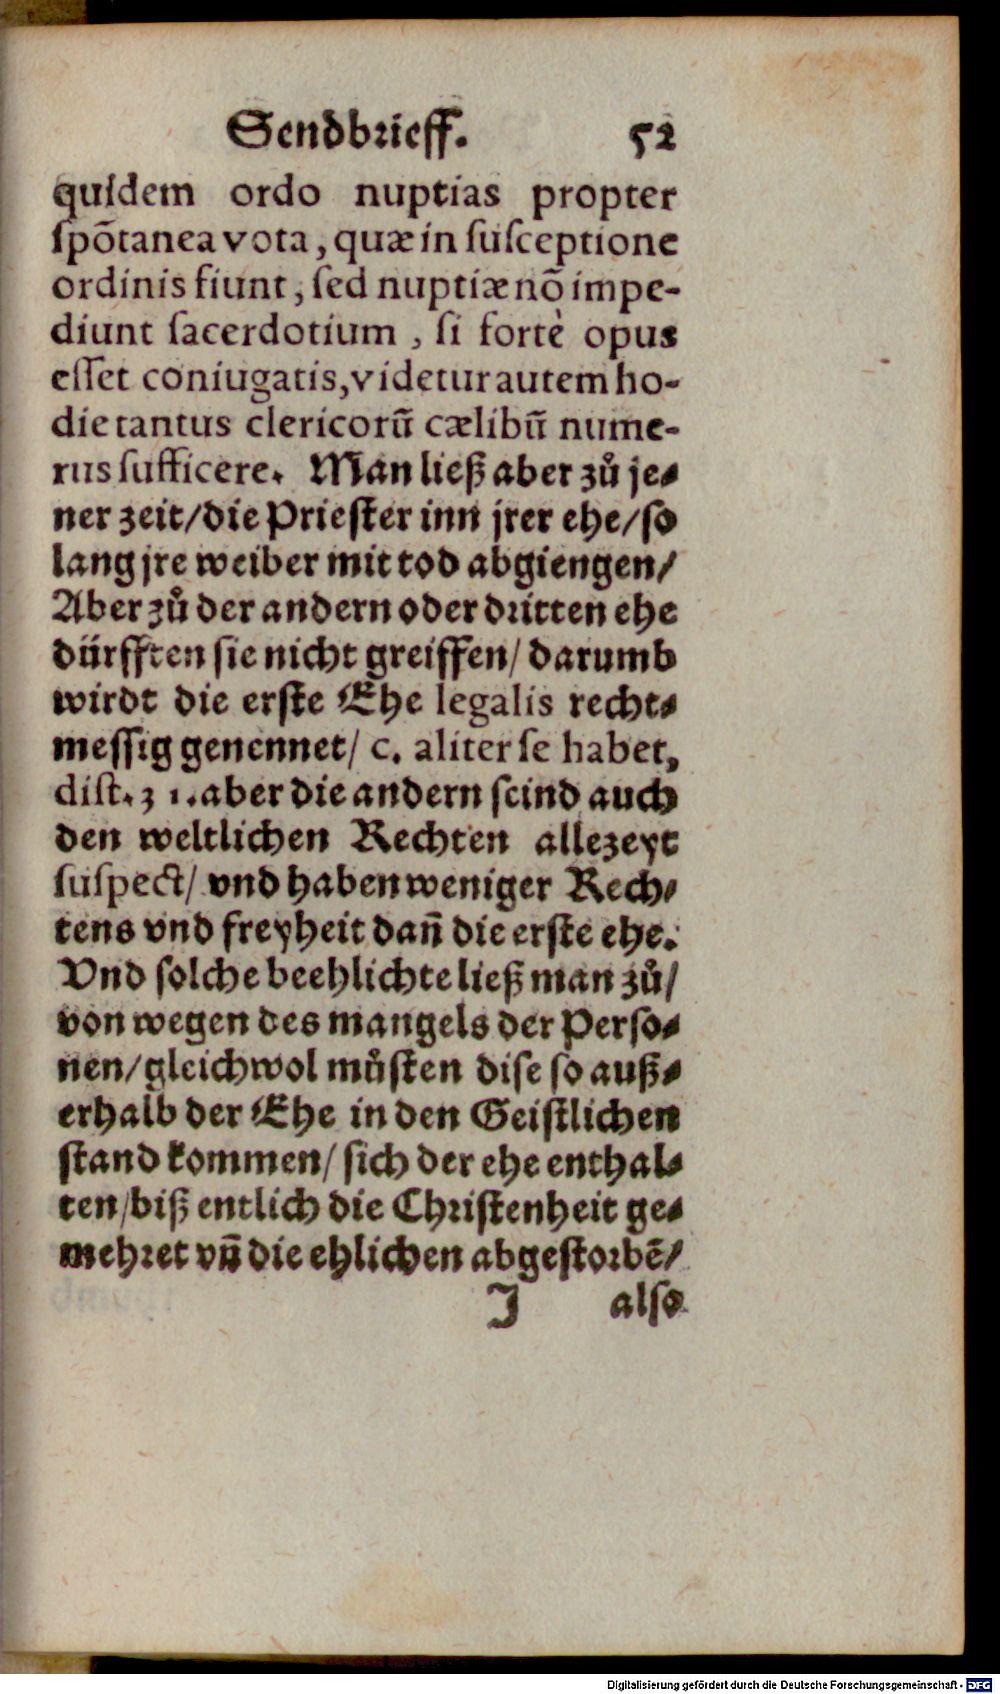 Sendbrieff. 52
quidem ordo nuptias propter
ſpõtanea vota, quæ in ſuſceptione
ordinis fiunt, ſed nuptiæ nõ impe-
diunt ſacerdotium, ſi fortè opus
eſſet coniugatis, videtur autem ho-
die tantus clericorũ cælibũ nume-
rus ſufficere. Man ließ aber zů je-
ner zeit/die Prieſter inn jrer ehe/ſo
lang jre weiber mit tod abgiengen/
Aber zů der andern oder dritten ehe
dürfften ſie nicht greiffen/ darumb
wirdt die erſte Ehe legalis recht-
meſſig genennet/ c. aliter ſe habet,
diſt. 31. aber die andern ſeind auch
den weltlichen Rechten allezeyt
ſuſpect/ vnd haben weniger Rech-
tens vnd freyheit dañ die erſte ehe.
Vnd ſolche beehlichte ließ man zů/
von wegen des mangels der Perſo-
nen/gleichwol můſten diſe ſo auß-
erhalb der Ehe in den Geiſtlichen
ſtand kommen/ ſich der ehe enthal-
ten/biß entlich die Chriſtenheit ge-
mehret vñ die ehlichen abgeſtorbẽ/
J also
Digitalisierung gefördert durch die Deutsche Forschungsgemeinschaft - DFG